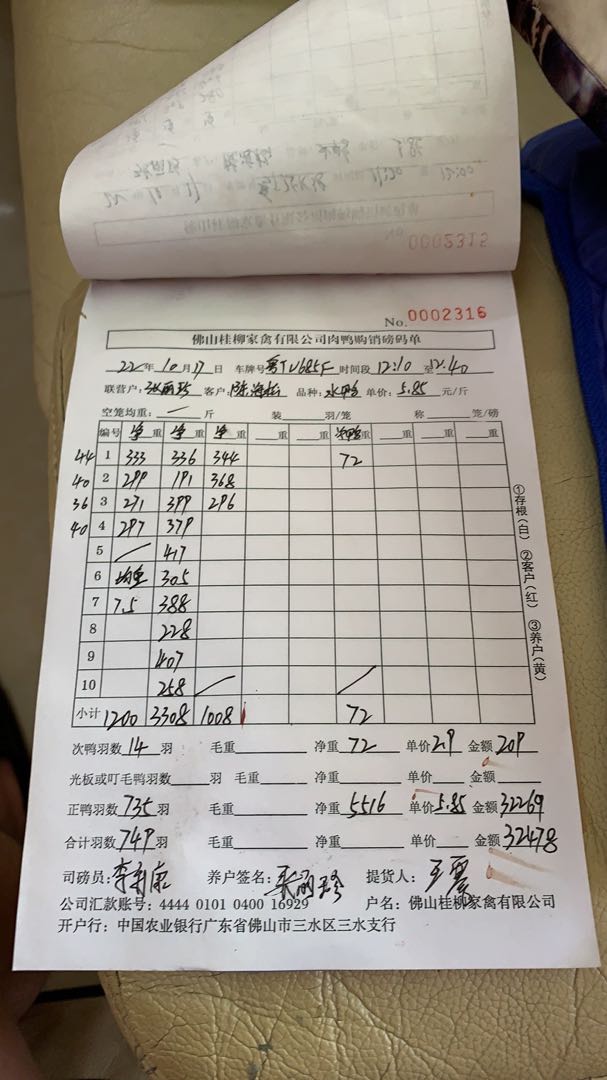 0002315
No. 0002316
佛山桂柳家禽有限公司肉鸭购销磅码单
22年10月17日 车牌号粤TU685F 时间段12:10至12:40
联营户:张丽珍 客户:陈海松 品种:水鸭 单价:5.85元/斤
空笼均重: / 斤 装 羽/笼 称 笼/磅
编号 净重 净重 净重 重 重 次鸭重 重 重 重
44 1 333 336 344 72
40 2 299 191 368
36 3 271 399 296
40 4 297 379
5 / 417
6 均重 305
7 7.5 388
8 228
9 407
10 258 / /
小计 1200 3308 1008 72
次鸭羽数14羽 毛重 净重72 单价2.9 金额209
光板或叮毛鸭羽数 羽 毛重 净重 单价 金额
正鸭羽数735羽 毛重 净重5516 单价5.85 金额32269
合计羽数749羽 毛重 净重 单价 金额32478
司磅员: 养户签名:张丽珍 提货人:王震
公司汇款账号: 4444 0101 0400 16929 户名:佛山桂柳家禽有限公司
开户行:中国农业银行广东省佛山市三水区三水支行
①存根(白) ②客户(红) ③养户(黄)